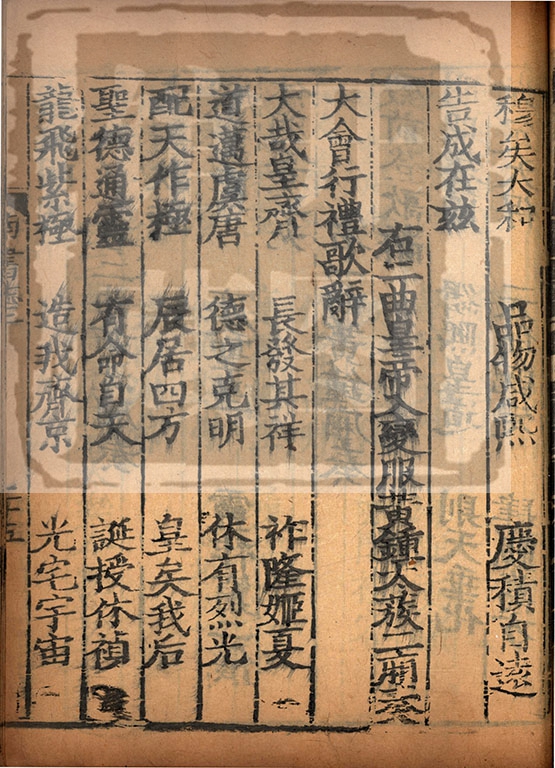 穆矣大和 品物咸熙 慶積自遠
告成在茲
右二曲皇帝入變服黃鍾太蔟二廂奏
大會行禮歌辭
大哉皇齊 長發其祥 祚隆姬夏
道邁虞唐 德之克明 休有烈光
配天作極 辰居四方 皇矣我后
聖德通靈 有命自天 誕授休禎
龍飛紫極 造我齊京 光宅宇宙